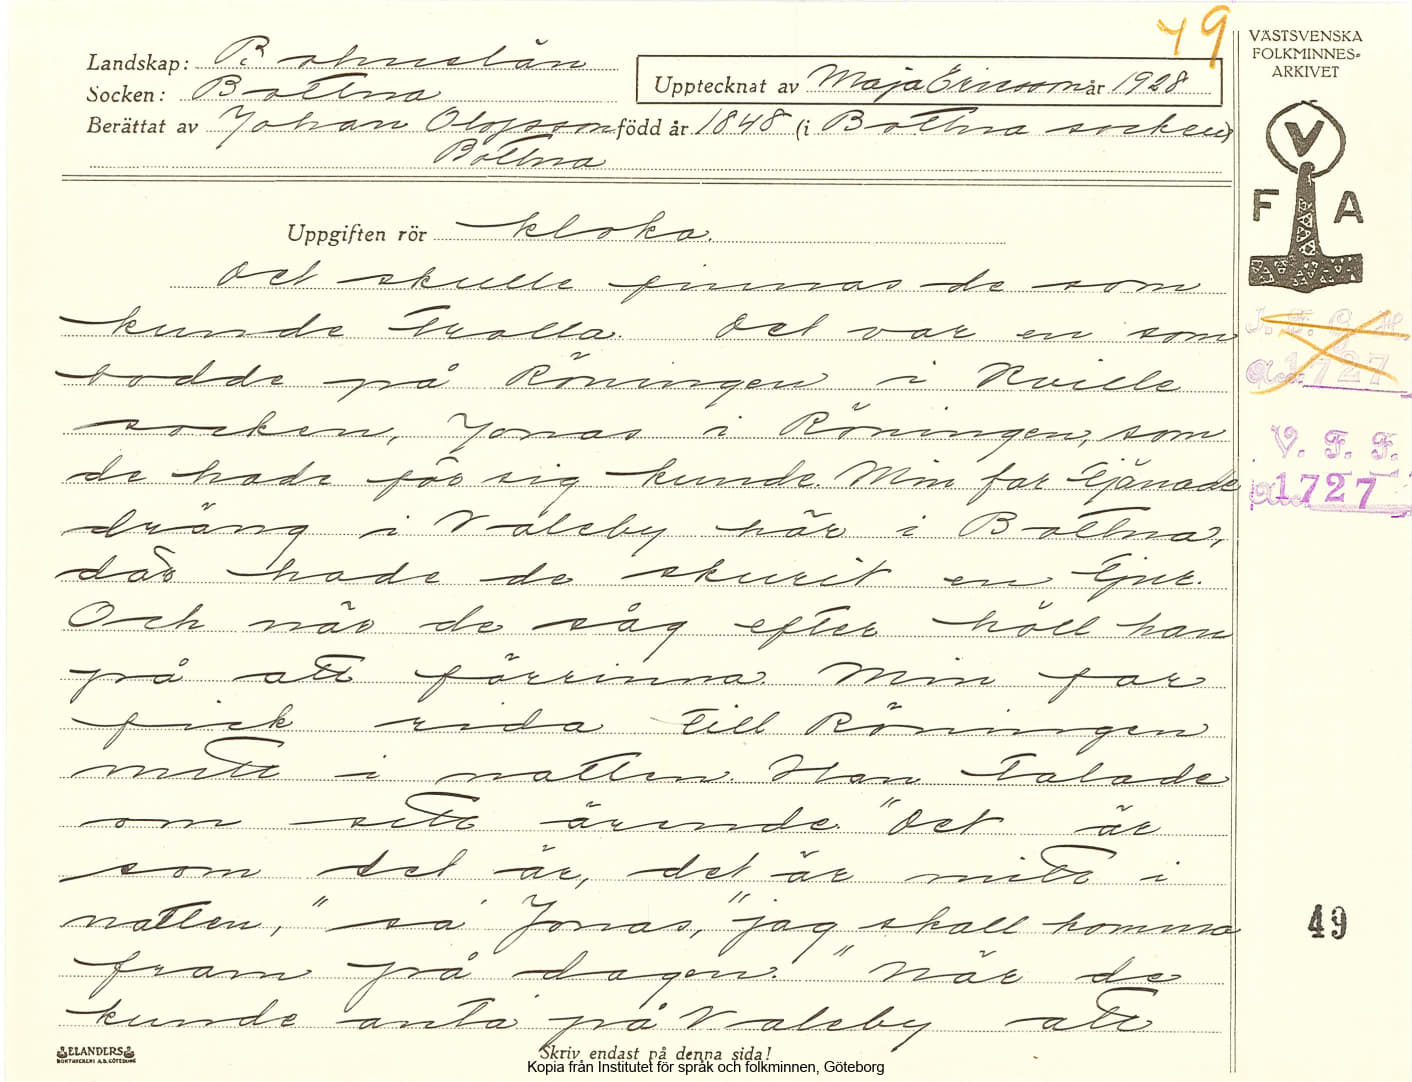 49
VÄSTSVENSKA
FOLKMINNES-
ARKIVET
Landskap: Bohuslän
Socken: Bottna
Upptecknat av Maja Ericson år 1928
Berättat av Johan Olofsson född år 1848 (i Bottna socken)
Bottna
V
F A
Uppgiften rör kloka.
Det skulle finnas de som
kunde trolla. Det var en som
bodde på Röningen i Kville
socken, Jonas i Röningen, som
de hade för sig kunde. Min far tjänade
dräng i Valeby här i Bottna,
där hade de skurit en tjur.
Och när de såg efter höll han
på att förrinna. Min far
fick rida till Röningen
mitt i natten. Han talade
om sitt ärende. "Det är
som det är, det är mitt i
natten," sa Jonas, "jag skall komma
fram på dagen." När de
kunde anta på Valeby att
V. F. F.
1727
49
ELANDERS
BOKTRYCKERI A.B. GÖTEBORG
Skriv endast på denna sida!
Kopia från Institutet för språk och folkminnen, Göteborg